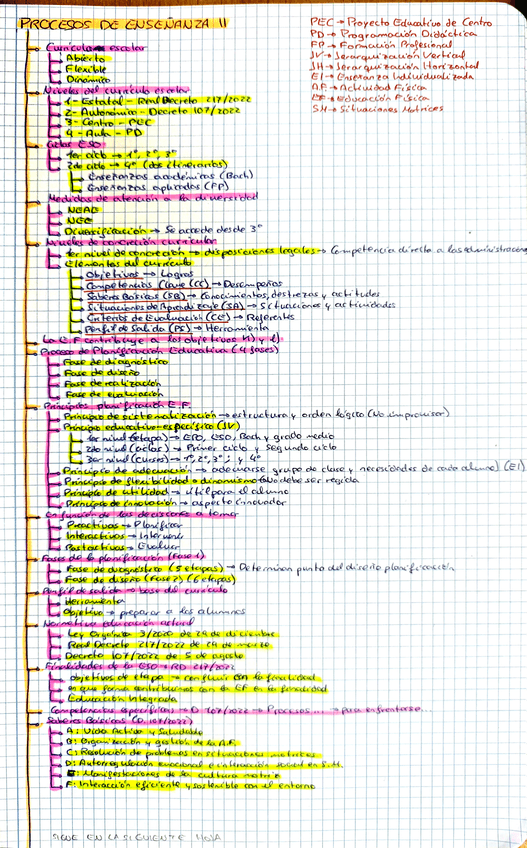 PROCESOS DE ENSEÑANZA II
PEC → Proyecto Educativo de Centro
PD → Programación Didáctica
FP → Formación Profesional
JV → Jerarquización Vertical
JH → Jerarquización Horizontal
EI → Enseñanza Individualizada
A.F. → Actividad Física
EF → Educación Física
SM → Situaciones Motrices
Currículo escolar
Abierto
Flexible
Dinámico
Niveles del currículo escolar
1- Estatal - Real Decreto 217/2022
2- Autonómico - Decreto 107/2022
3- Centro - PEC
4- Aula - PD
Ciclos ESO
1er ciclo → 1º, 2º, 3º
2do ciclo → 4º (dos itinerarios)
Enseñanzas académicas (Bach)
Enseñanzas aplicadas (FP)
Medidas de atención a la diversidad
NEAE
NEE
Diversificación → Se accede desde 3º
Niveles de concreción curricular
1er nivel de concreción → disposiciones legales → Competencia directa a las
Elementos del currículo
Objetivos → Logros
Competencias Clave (CC) → Desempeños
Saberes Básicos (SB) → Conocimientos, destrezas y actitudes
Situaciones de Aprendizaje (SA) → Situaciones y actividades
Criterios de Evaluación → Referentes
Perfil de Salida (PS) → Herramienta
La E.F contribuye a los objetivos
Proceso de Planificación Educativa (4 fases)
Fase de diagnóstico
Fase de diseño
Fase de realización
Fase de evaluación
Principios planificación E.F.
Principio de sistematización → estructura y orden lógico (No improvisar)
Principio educativo-específico (JV)
1er nivel (etapa) → ESO, Bach y grado medio
2do nivel (ciclos) → Primer ciclo y segundo ciclo
3er nivel (curso) → 1º, 2º, 3º y 4º
Principio de adecuación → adecuarse grupo de clase y necesidades de cada alumno (EI)
Principio de flexibilidad o dinamismo (No debe ser rígida
Principio de utilidad → útil para el alumno
Principio de innovación → aspecto innovador
En función de las decisiones a tomar
Preactivas → Planificar
Interactivas → Intervenir
Postactivas → Evaluar
Fases de la planificación (Fase 1)
Fase de diagnóstico (5 etapas) → Determinan punto del diseño planificación
Fase de diseño (Fase 2) (6 etapas)
Perfil de salida → base del currículo
Herramienta
Objetivo → preparar a los alumnos
Normativa educación actual
Ley Orgánica 3/2020 de 29 de diciembre
Real Decreto 217/2022 de 29 de marzo
Decreto 107/2022 de 5 de agosto
Finalidades de la ESO → RD 217/2022
objetivos de etapa → confluir con la finalidad
contribuimos con la EF en la finalidad
Educación Integrada
Competencias específicas → D 107/2022 → Procesos... → para enfrentarse...
Saberes Básicos (D. 107/2022)
A: Vida Activa y Saludable
B: Organización y gestión de la A.F.
C: Resolución de problemas en situaciones motrices
D: Autorregulación emocional e interacción social en S.M.
E: Manifestaciones de la cultura motriz
F: Interacción eficiente y sostenible con el entorno
SIGUE EN LA SIGUIENTE HOJA